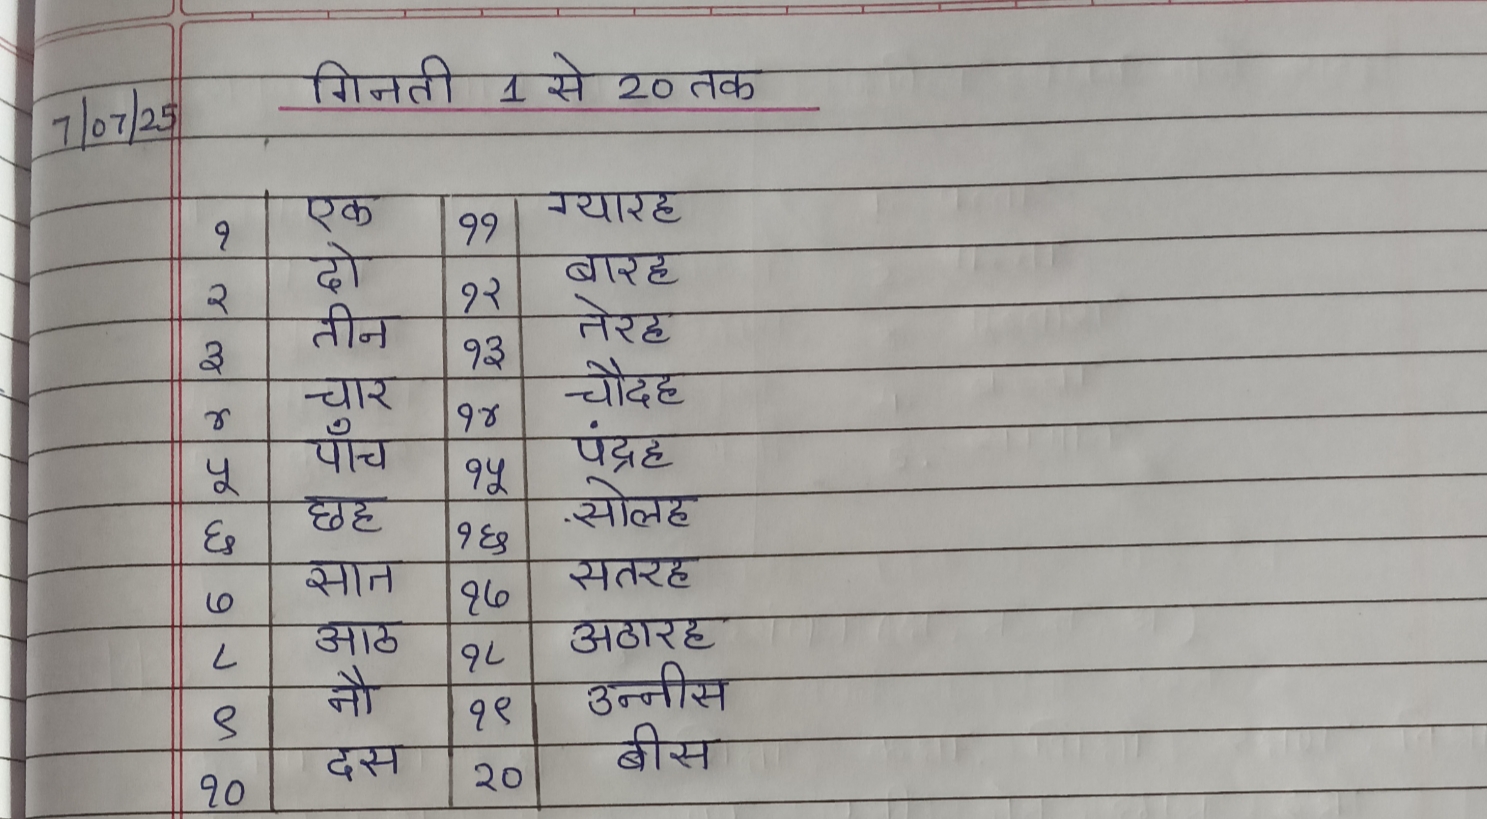 गिनती 1 से 20 तक
7/07/25
१ एक ११ ग्यारह
२ दो १२ बारह
३ तीन १३ तेरह
४ चार १४ चौदह
५ पाँच १५ पंद्रह
६ छह १६ सोलह
७ सात १७ सतरह
८ आठ १८ अठारह
९ नौ १९ उन्नीस
१० दस २० बीस